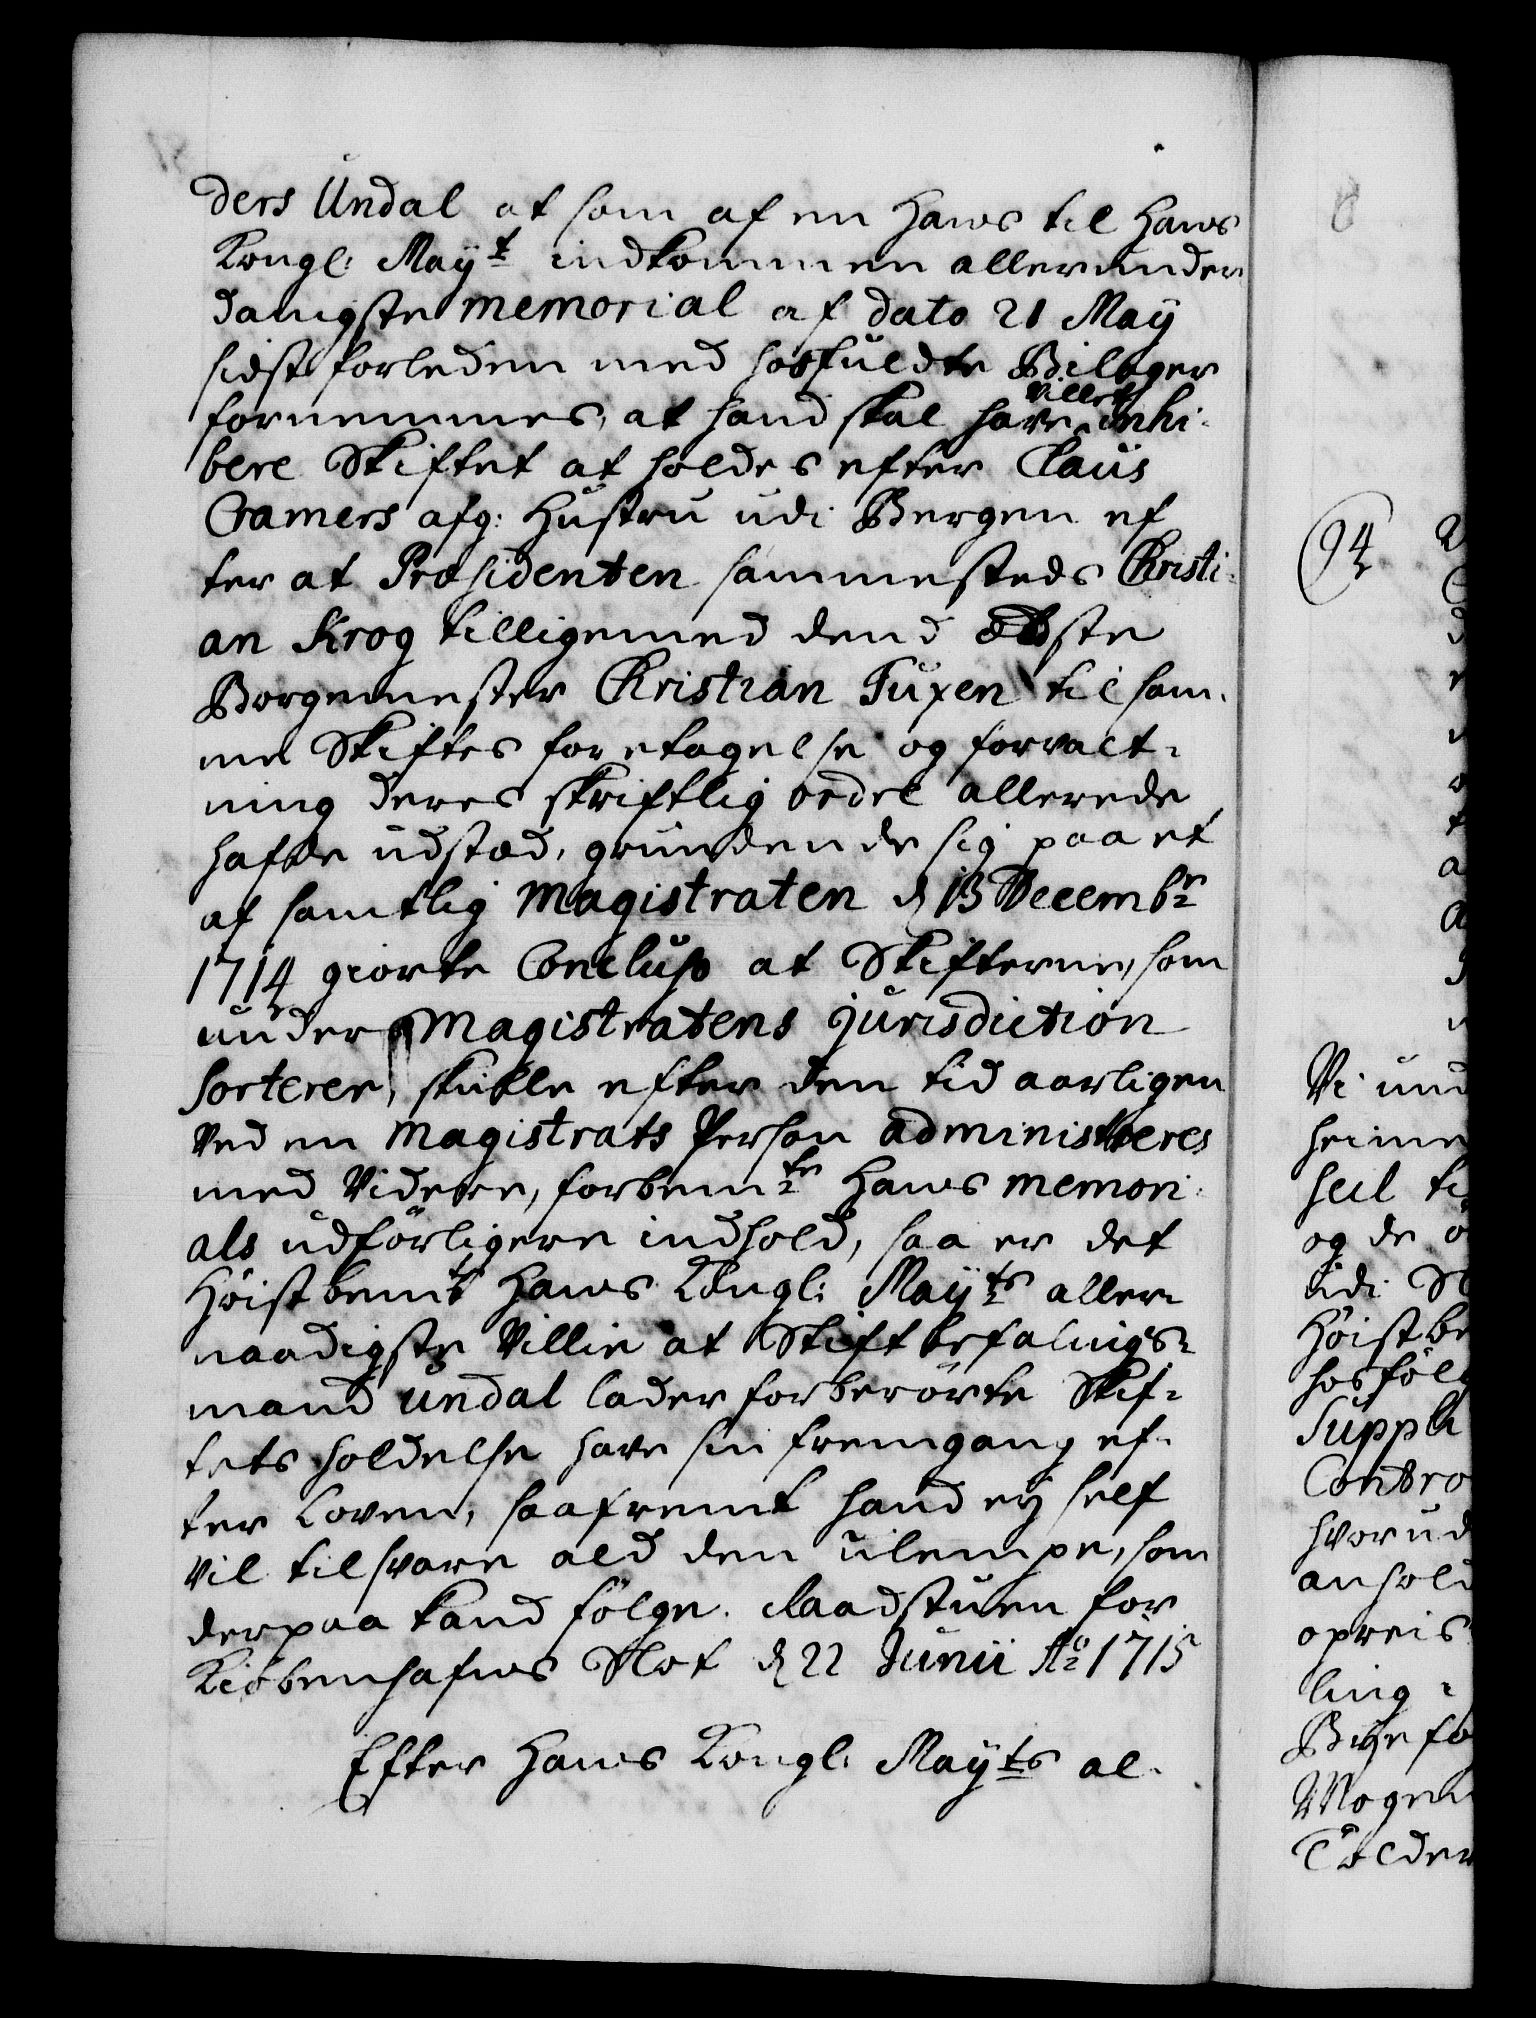 ders Undal at som af en Hans til Hans
Kongl: May:t indkommen allerunder-
danigste memorial af dato 21 May
sidst forleden med hosfuldte Bilager
fornemmes, at hand skal have villet inhi-
bere Skiftet at holdes efter Claus
Cramers afg: Hustru udi Bergen ef
ter at Præsidenten sammesteds Christi-
an Krog tilligemed dend ældste
Borgemester Christian Tuxen til sam-
me Skiftes foretagelse og forvalt-
ning deres skriftlig ordre allerede
hafde udstæd, grundende sig paa et
af samtlig Magistraten d 13 Decemb:r
1714 giorte Concluso at Skifterne, som
under Magistratens jurisdiction
sorterer, skulle efter den tid aarligen
ved en Magistrats Person administreres
med Videre, forbem:te Hans memori-
als udförligere indhold, saa er det
Höistbem:te Hans Kongl: May:ts aller-
naadigste Villie at Stiftbefalings-
mand Undal lader forberörte Skif-
tets holdelse have sin fremgang ef-
ter Loven, saafremt hand ej self
vil tilsvare ald den ulempe, som
derpaa kand fölge. Raadstuen for
Kiöbenhafns Slot d 22 Junii A:o 1715
Efter Hans Kongl: May:ts al-
94
Vi und
heime
heil ti
og de
udi
Höistbe
hosföl
Suppli
Contro
hvorud
anhold
opreis
ling
Byefo
Mogen
Tolder